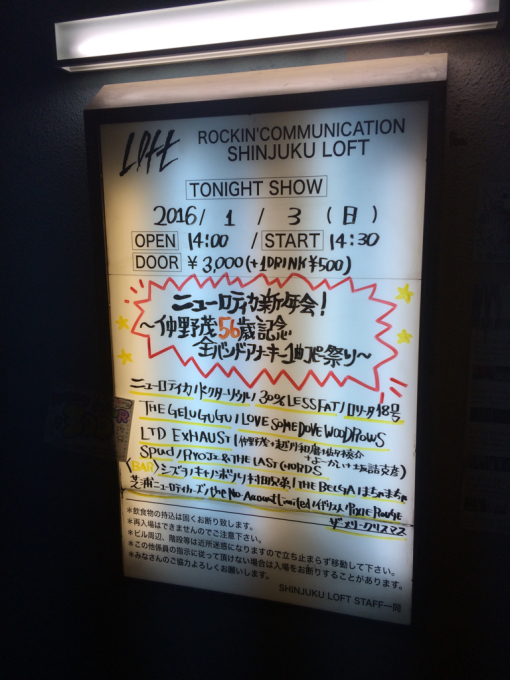 LOFT
ROCKIN'COMMUNICATION
SHINJUKU LOFT
TONIGHT SHOW
2016/ 1 / 3 (日)
OPEN 14:00 / START 14:30
DOOR ¥3,000(+1DRINK¥500)
ニューロティカ新年会!
～仲野茂56歳記念
全バンドアナーキー1曲コピー祭り～
ニューロティカ/ドクターソウル/30%LESSFAT/ロリータ18号
THE GELUGUGU/LOVE SOME DOVE WOODROWS
LTD EXHAUST(仲野茂+越川和磨+佐々木亮介
Spud/RYOJI&THE LAST CHORDS
〈BAR〉シズヲ/キャノンボーリック/THE BELGA/まちゃまちゃ
芝浦ニューロティカーズ/the No-Account Limited/PIXIE ROUGE
ザ・メリークリスマス
＊飲食物の持込は固くお断り致します。
＊再入場はできませんのでご注意下さい。
＊ビル周辺、階段等は近所迷惑になりますので立ち止まらず移動して下さい。
＊この他係員の指示に従って頂けない場合は入場をお断りすることがあります。
＊みなさんのご協力よろしくお願いします。
SHINJUKU LOFT STAFF一同